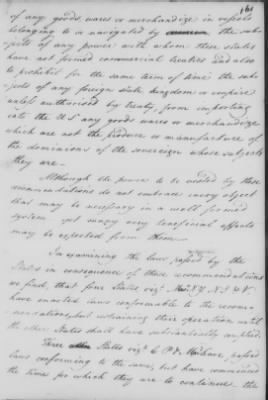 161
of any goods, wares or merchandize in vessels
belonging to or navigated by the sub-
jects of any power with whom these states
have not formed commercial treaties and also
to prohibit for the same term of time the sub-
jects of any foreign state kingdom or empire
unless authorised by treaty, from importing
into the U.S. any goods wares or merchandize
which are not the produce or manufacture of
the dominions of the sovereign whose subjects
they are —
Although the power to be vested by these
recommendations do not embrace every object
that may be necessary in a well formed
system yet many very beneficial effects
may be expected from them —
In examining the laws passed by the
States in consequence of these recommendations
we find, that four States viz.
have enacted laws conformable to the recom-
mendations, but restraining their operation until
the other States shall have substantially complied.
Three States viz. passed
laws conforming to the same, but have commenced
the time for which they are to continue the